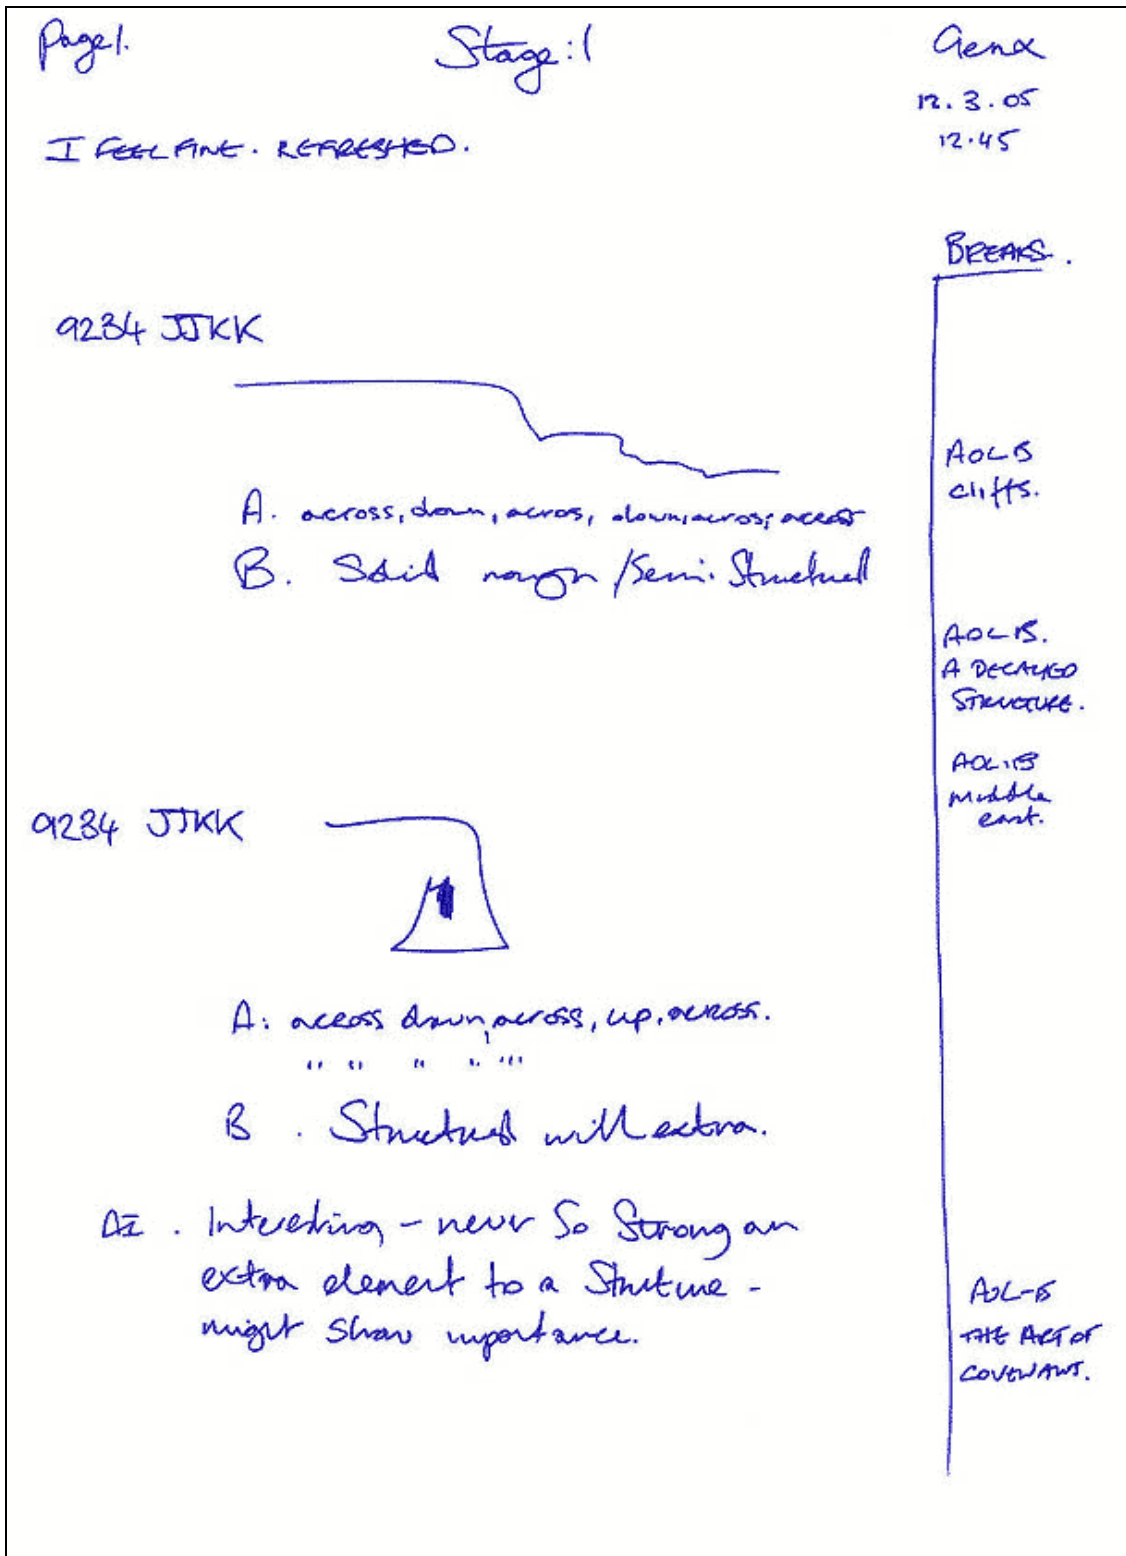 Page 1.
Stage: 1
Genα
12.3.05
12.45
I FEEL FINE. REFRESHED.
BREAKS.
9234 JJKK
AOLB
cliffs.
A. across, down, acros, down, acros, across
B. Solid rough / Semi. Structural
AOLB.
A DECAYED
STRUCTURE.
AOLB
middle
east.
9234 JJKK
A: across down, across, up, across.
" " " " "
B. Structural will extra.
AI. Interesting - never So Strong an
extra element to a Struture -
might show importance.
AOL-B
THE ART OF
COVENANT.